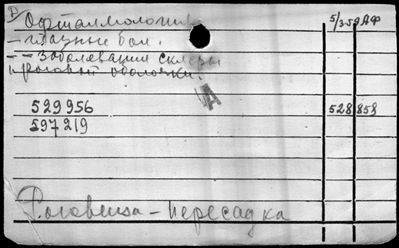 Офталмология
- глазные бол.
- - заболевания склеры
и роговой оболочки.
529956 528858
597219
Роговица - пересадка